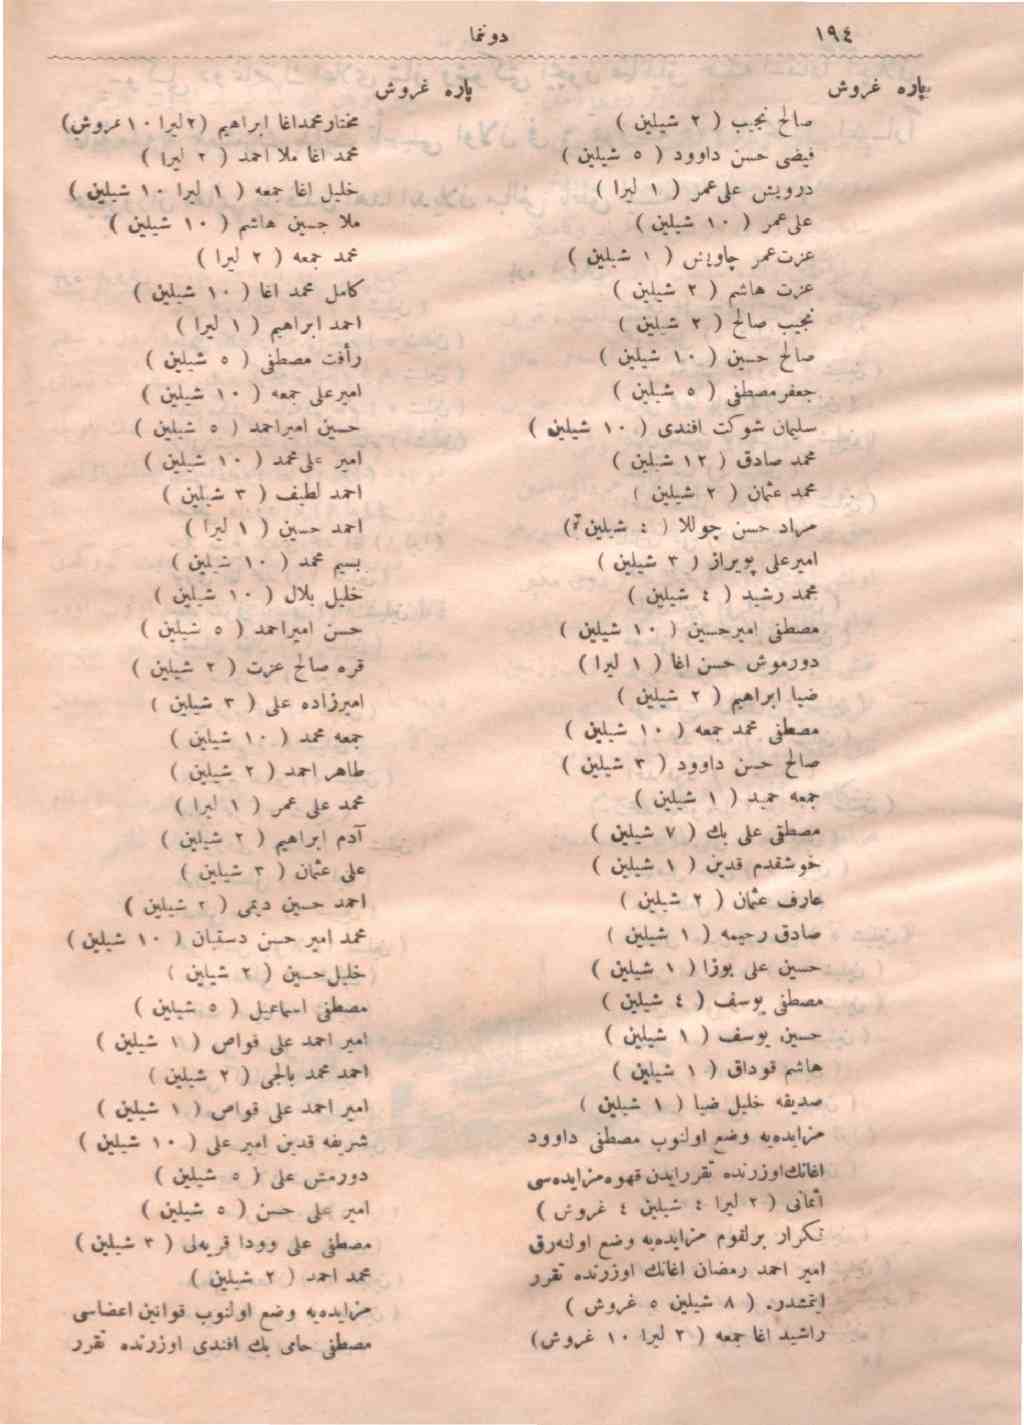 ١٩٤
دونما
پاره غروش
صالح نجيب ( ٢ شيلين )
فيضى حسن داوود ( ٥ شيلين )
درويش على عمر ( ١ ليرا )
على عمر ( ١٠ شيلين )
عزت عمر چاويش ( ١ شيلين )
عزت هاشم ( ٢ شيلين )
نجيب صالح ( ٢ شيلين )
صالح حسين ( ١٠ شيلين )
جعفر مصطفى ( ٥ شيلين )
سليمان شوكت افندى ( ١٠ شيلين )
محمد صادق ( ١٢ شيلين )
محمد عثمان ( ٢ شيلين )
مراد حسن چوللا ( ٤ شيلين )
اميرعلى پويراز ( ٣ شيلين )
محمد رشيد ( ٤ شيلين )
مصطفى اميرحسين ( ١٠ شيلين )
دورموش حسن اغا ( ١ ليرا )
ضيا ابراهيم ( ٢ شيلين )
مصطفى محمد جمعه ( ١٠ شيلين )
صالح حسن داوود ( ٣ شيلين )
جمعه حميد ( ١ شيلين )
مصطفى على بك ( ٧ شيلين )
خوشقدم قدين ( ١ شيلين )
عارف عثمان ( ٢ شيلين )
صادق رحيمه ( ١ شيلين )
حسين على يوزا ( ١ شيلين )
مصطفى يوسف ( ٤ شيلين )
حسين يوسف ( ١ شيلين )
هاشم قوداق ( ١ شيلين )
صديقه خليل ضيا ( ١ شيلين )
مزايده‌يه وضع اولنوب مصطفى داوود
اغانك اوزرنده تقررايدن قهوه مزايده‌سى
أثمانى ( ٢ ليرا ٤ شيلين ٤ غروش )
تكرار برلقوم مزايده‌يه وضع اولنه‌رق
امير احمد رمضان اغانك اوزرنده تقرر
ايتمشدر. ( ٨ شيلين ٥ غروش )
راشيد اغا جمعه ( ٢ ليرا ١٠ غروش )
پاره غروش
مختار محمداغا ابراهيم ( ٢ ليرا ١٠ غروش )
محمد اغا ملا احمد ( ٢ ليرا )
خليل اغا جمعه ( ١ ليرا ١٠ شيلين )
ملا حسين هاشم ( ١٠ شيلين )
محمد جمعه ( ٢ ليرا )
كامل محمد اغا ( ١٠ شيلين )
احمد ابراهيم ( ١ ليرا )
رأفت مصطفى ( ٥ شيلين )
اميرعلى جمعه ( ١٠ شيلين )
حسين اميراحمد ( ٥ شيلين )
امير على محمد ( ١٠ شيلين )
احمد لطيف ( ٣ شيلين )
احمد حسين ( ١ ليرا )
بسيم محمد ( ١٠ شيلين )
خليل بلال ( ١٠ شيلين )
حسن اميراحمد ( ٥ شيلين )
قره صالح عزت ( ٢ شيلين )
اميرزاده على ( ٣ شيلين )
جمعه محمد ( ١٠ شيلين )
طاهر احمد ( ٢ شيلين )
محمد على عمر ( ١ ليرا )
آدم ابراهيم ( ٢ شيلين )
على عثمان ( ٣ شيلين )
احمد حسين ديمى ( ٢ شيلين )
محمد امير حسن دستبان ( ١٠ شيلين )
خليل حسين ( ٢ شيلين )
مصطفى اسماعيل ( ٥ شيلين )
امير احمد على قواص ( ١ شيلين )
احمد محمد بالجى ( ٢ شيلين )
امير احمد على قواص ( ١ شيلين )
شريفه قدين امير على ( ١٠ شيلين )
دورمش على ( ٥ شيلين )
امير على حسن ( ٥ شيلين )
مصطفى على وودا قريه‌لى ( ٣ شيلين )
محمد احمد ( ٢ شيلين )
مزايده‌يه وضع اولنوب قوانين اعضاسى
مصطفى حامى بك افندى اوزرنده تقرر